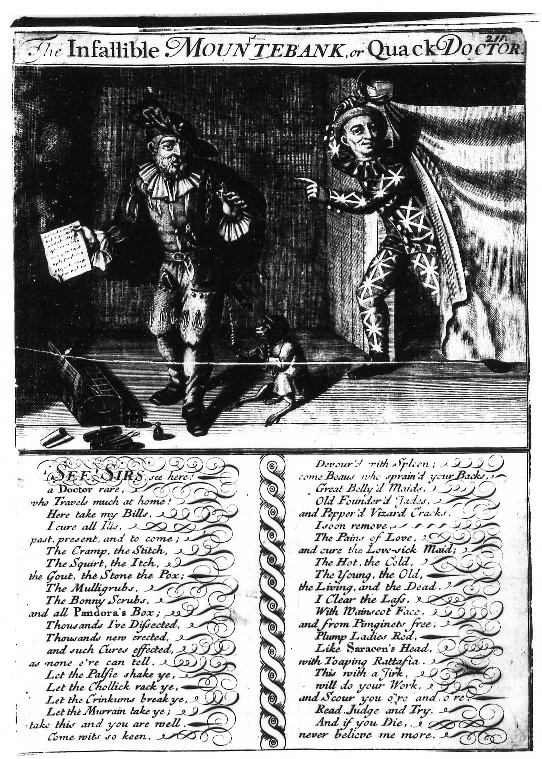 The Infallible MOUNTEBANK, or Quack DOCTOR.
211.
SEE SIRS, see here!
a Doctor rare,
who Travels much at home!
Here take my Bills,
I cure all Ills,
past, present, and to come;
The Cramp, the Stitch,
The Squirt, the Itch,
the Gout, the Stone the Pox;
The Mulligrubs,
The Bonny Scrubs,
and all Pandora's Box;
Thousands I've Dissected,
Thousands new erected,
and such Cures effected,
as none e're can tell.
Let the Palsie shake ye,
Let the Chollick rack ye,
Let the Crinkums break ye,
Let the Murrain take ye;
take this and you are well.
Come wits so keen,
Devour'd with Spleen;
come Beaus who sprain'd your Backs,
Great Belly'd Maids,
Old Founder'd Jades,
and Pepper'd Vizard Cracks.
I soon remove,
The Pains of Love,
and cure the Love-sick Maid;
The Hot, the Cold,
The Young, the Old,
the Living, and the Dead.
I Clear the Lass,
With Wainscot Face,
and from Pimginets free,
Plump Ladies Red,
Like Saracen's Head,
with Toaping Rattafia.
This with a Jirk,
will do your Work,
and Scour you o're and o're
Read, Judge and Try,
And if you Die,
never believe me more.